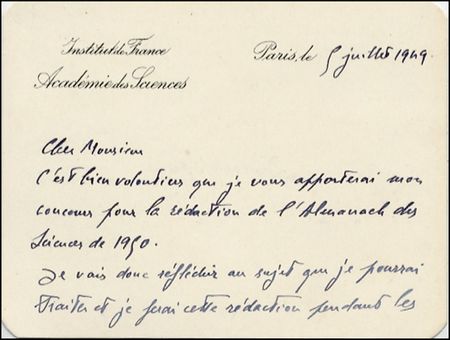 Institut de France
Académie des Sciences
Paris, le 5 juillet 1949.
Cher Monsieur
C'est bien volontiers que je vous apporterai mon
concours pour la rédaction de l'Almanach des
Sciences de 1950.
Je vais donc réfléchir au sujet que je pourrai
traiter et je ferai cette rédaction pendant les